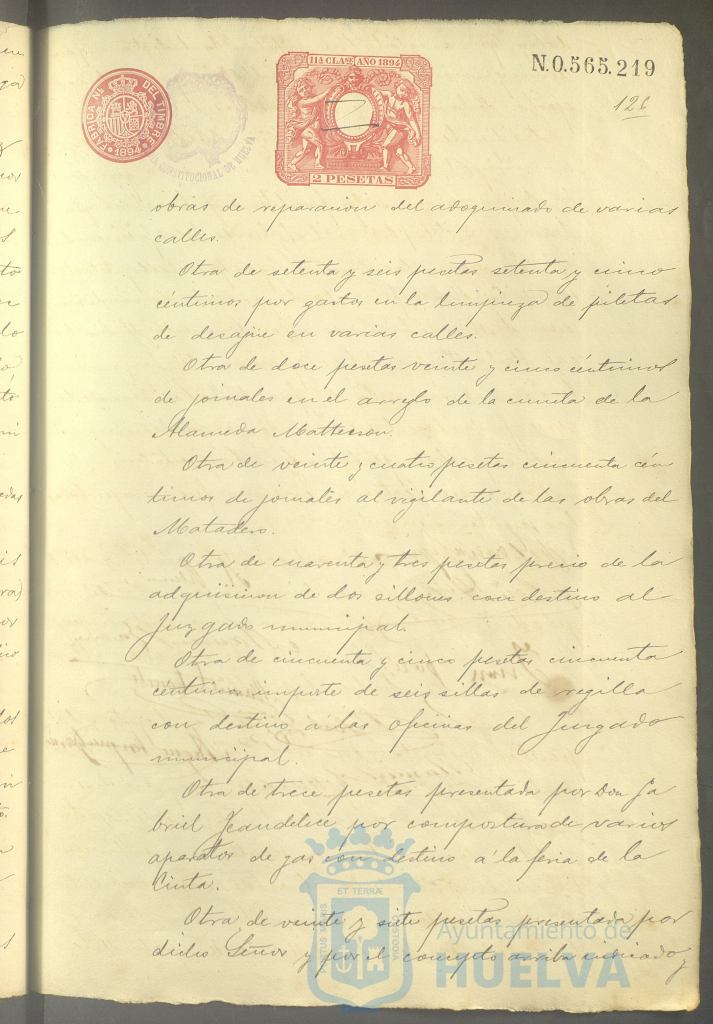 11ª CLASE AÑO 1894
N.0.565.219
126
FÁBRICA Nal DEL TIMBRE
1894
CONSTITUCIONAL DE HUELVA
2 PESETAS
obras de reparacion del adoquinado de varias
calles.
Otra de setenta y seis pesetas setenta y cinco
céntimos por gastos en la limpieza de piletas
de desagüe en varias calles.
Otra de doce pesetas veinte y cinco céntimos
de jornales en el arreglo de la cuneta de la
Alameda Mattecson.
Otra de veinte y cuatro pesetas cincuenta cén
timos de jornales al vigilante de las obras del
Matadero.
Otra de cuarenta y tres pesetas precio de la
adquisicion de dos sillones con destino al
Juzgado municipal.
Otra de cincuenta y cinco pesetas cincuenta
centimos importe de seis sillas de regilla
con destino a las oficinas del Juzgado
municipal.
Otra de trece pesetas presentada por Don Ga
briel Jeandelice por compostura de varios
aparatos de gas con destino á la feria de la
Cinta.
Otra de veinte y siete pesetas presentada por
dicho Señor y por el concepto arriba indicado y
PORTUS MARIS ET TERRÆ CUSTODIA
Ayuntamiento de
HUELVA